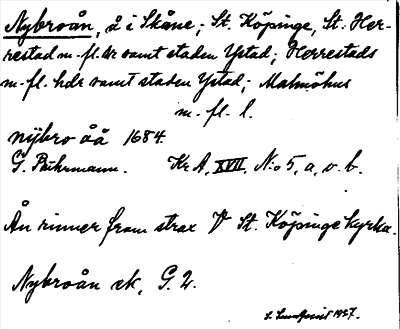 Nybroån, å i Skåne; St. Köpinge, St. Her-
restad m. fl. sn samt staden Ystad; Herrestads
m. fl. hdr samt staden Ystad; Malmöhus
m. fl. l.
nÿbro åå 1684.
G. Buhrmann. Kr A, XVII, No 5, a, o. b.
Ån rinner fram strax V St. Köpinge kyrka.
Nybroån ek, G. 2.
S. Lundquist 1957.